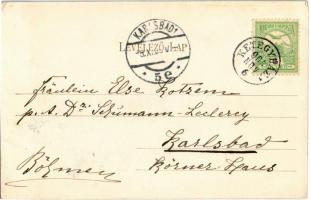 KARLSBAD 1
LEVELEZŐ-LAP
5e
KÉTEGYHÁZA
Fräulein Else Kotzem
p. A. Dr. Schumann-Leclercq
Karlsbad
Körner-Haus
Böhmen